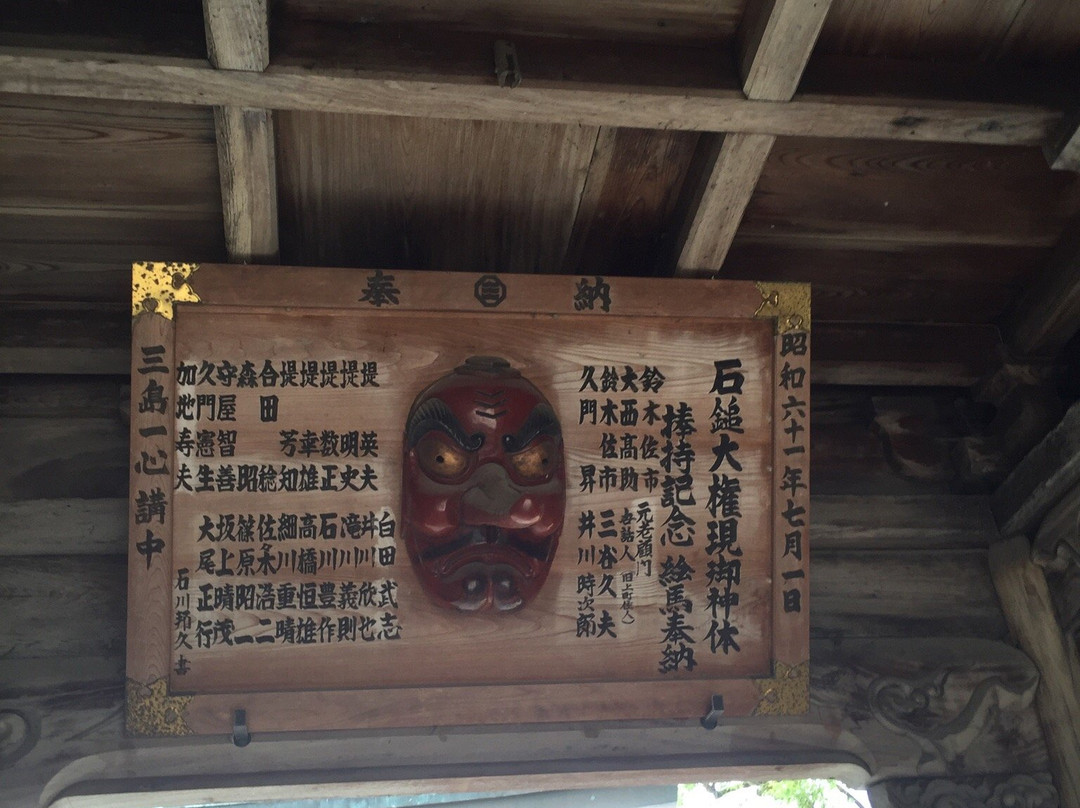 奉 納
昭和六十一年七月一日
石鎚大権現御神体
捧持記念 絵馬奉納
鈴木佐市
大西高助
鈴木佐市
久門昇
元老顧問
世話人 旧上町住人
三谷久夫
井川時次郎
堤英夫
堤明史
堤数正
堤幸雄
堤芳知
合田稔
森昭
守屋智善
久門憲生
加地寿夫
白田武志
井川欣也
滝川義則
石川豊作
高橋恒雄
細川重晴
佐々木浩二
篠原昭二
坂上晴茂
大尾正行
石川邦久 書
三島一心講中